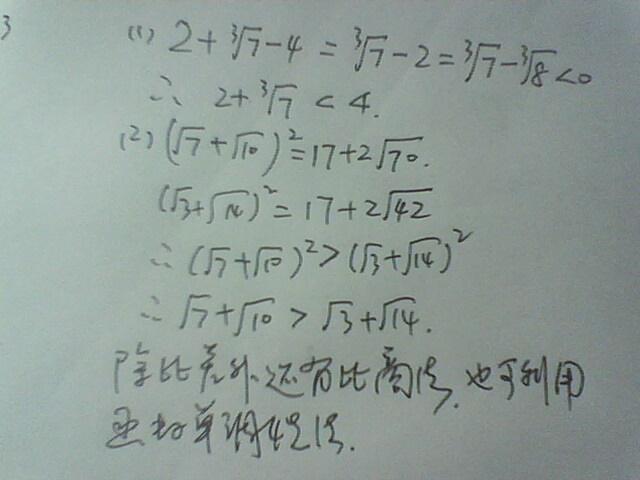 3
(1) 2+∛7-4 = ∛7-2 = ∛7-∛8<0
∴ 2+∛7 < 4.
(2) (√7+√10)²=17+2√70.
(√3+√14)²=17+2√42
∴ (√7+√10)²>(√3+√14)²
∴ √7+√10 > √3+√14.
除比差外,还有比商法,也可利用
函数单调性法.